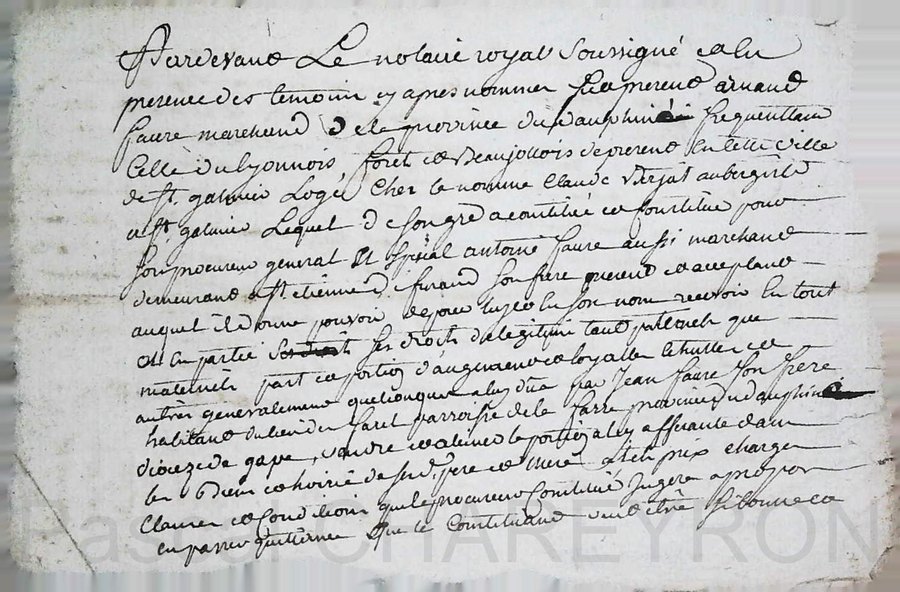 Pardevant Le notaire royal Soussigné et en la
presence des temoins cy apres nommes feut present arnaud
faure marchand de la province du dauphiné frequentant
Celle du lyonnois foret et Beaujollois de present en cette ville
de St. galmier Logé Cher le nomme Claude Verjat aubergiste
a St. galmier Lequel de son gré a constitué et Constitue pour
Son procureur general et spécial antoine faure aussi marchand
demeurant a St. etienne de furand Son frere present et acceptant
auquel il donne pouvoir de pour luy et en Son nom recevoir En tout
ou En partie ses droits de legitime tant paternels que
maternels part et portion d'augment et
autres generalement quelconques a luy dus par Jean faure Son frere
habitant du lieu du faret parroisse de la farre province du dauphiné
dioceze de gape, vendre et aliener la portion a luy afferante dans
les Biens et hoirie de Sesd. pere et mere a tel prix charges
Clauses et Conditions que le procureur Constitué Jugera a propos
en passer quittance que le Constituant veut etre Si bonne et
Pascal CHAREYRON